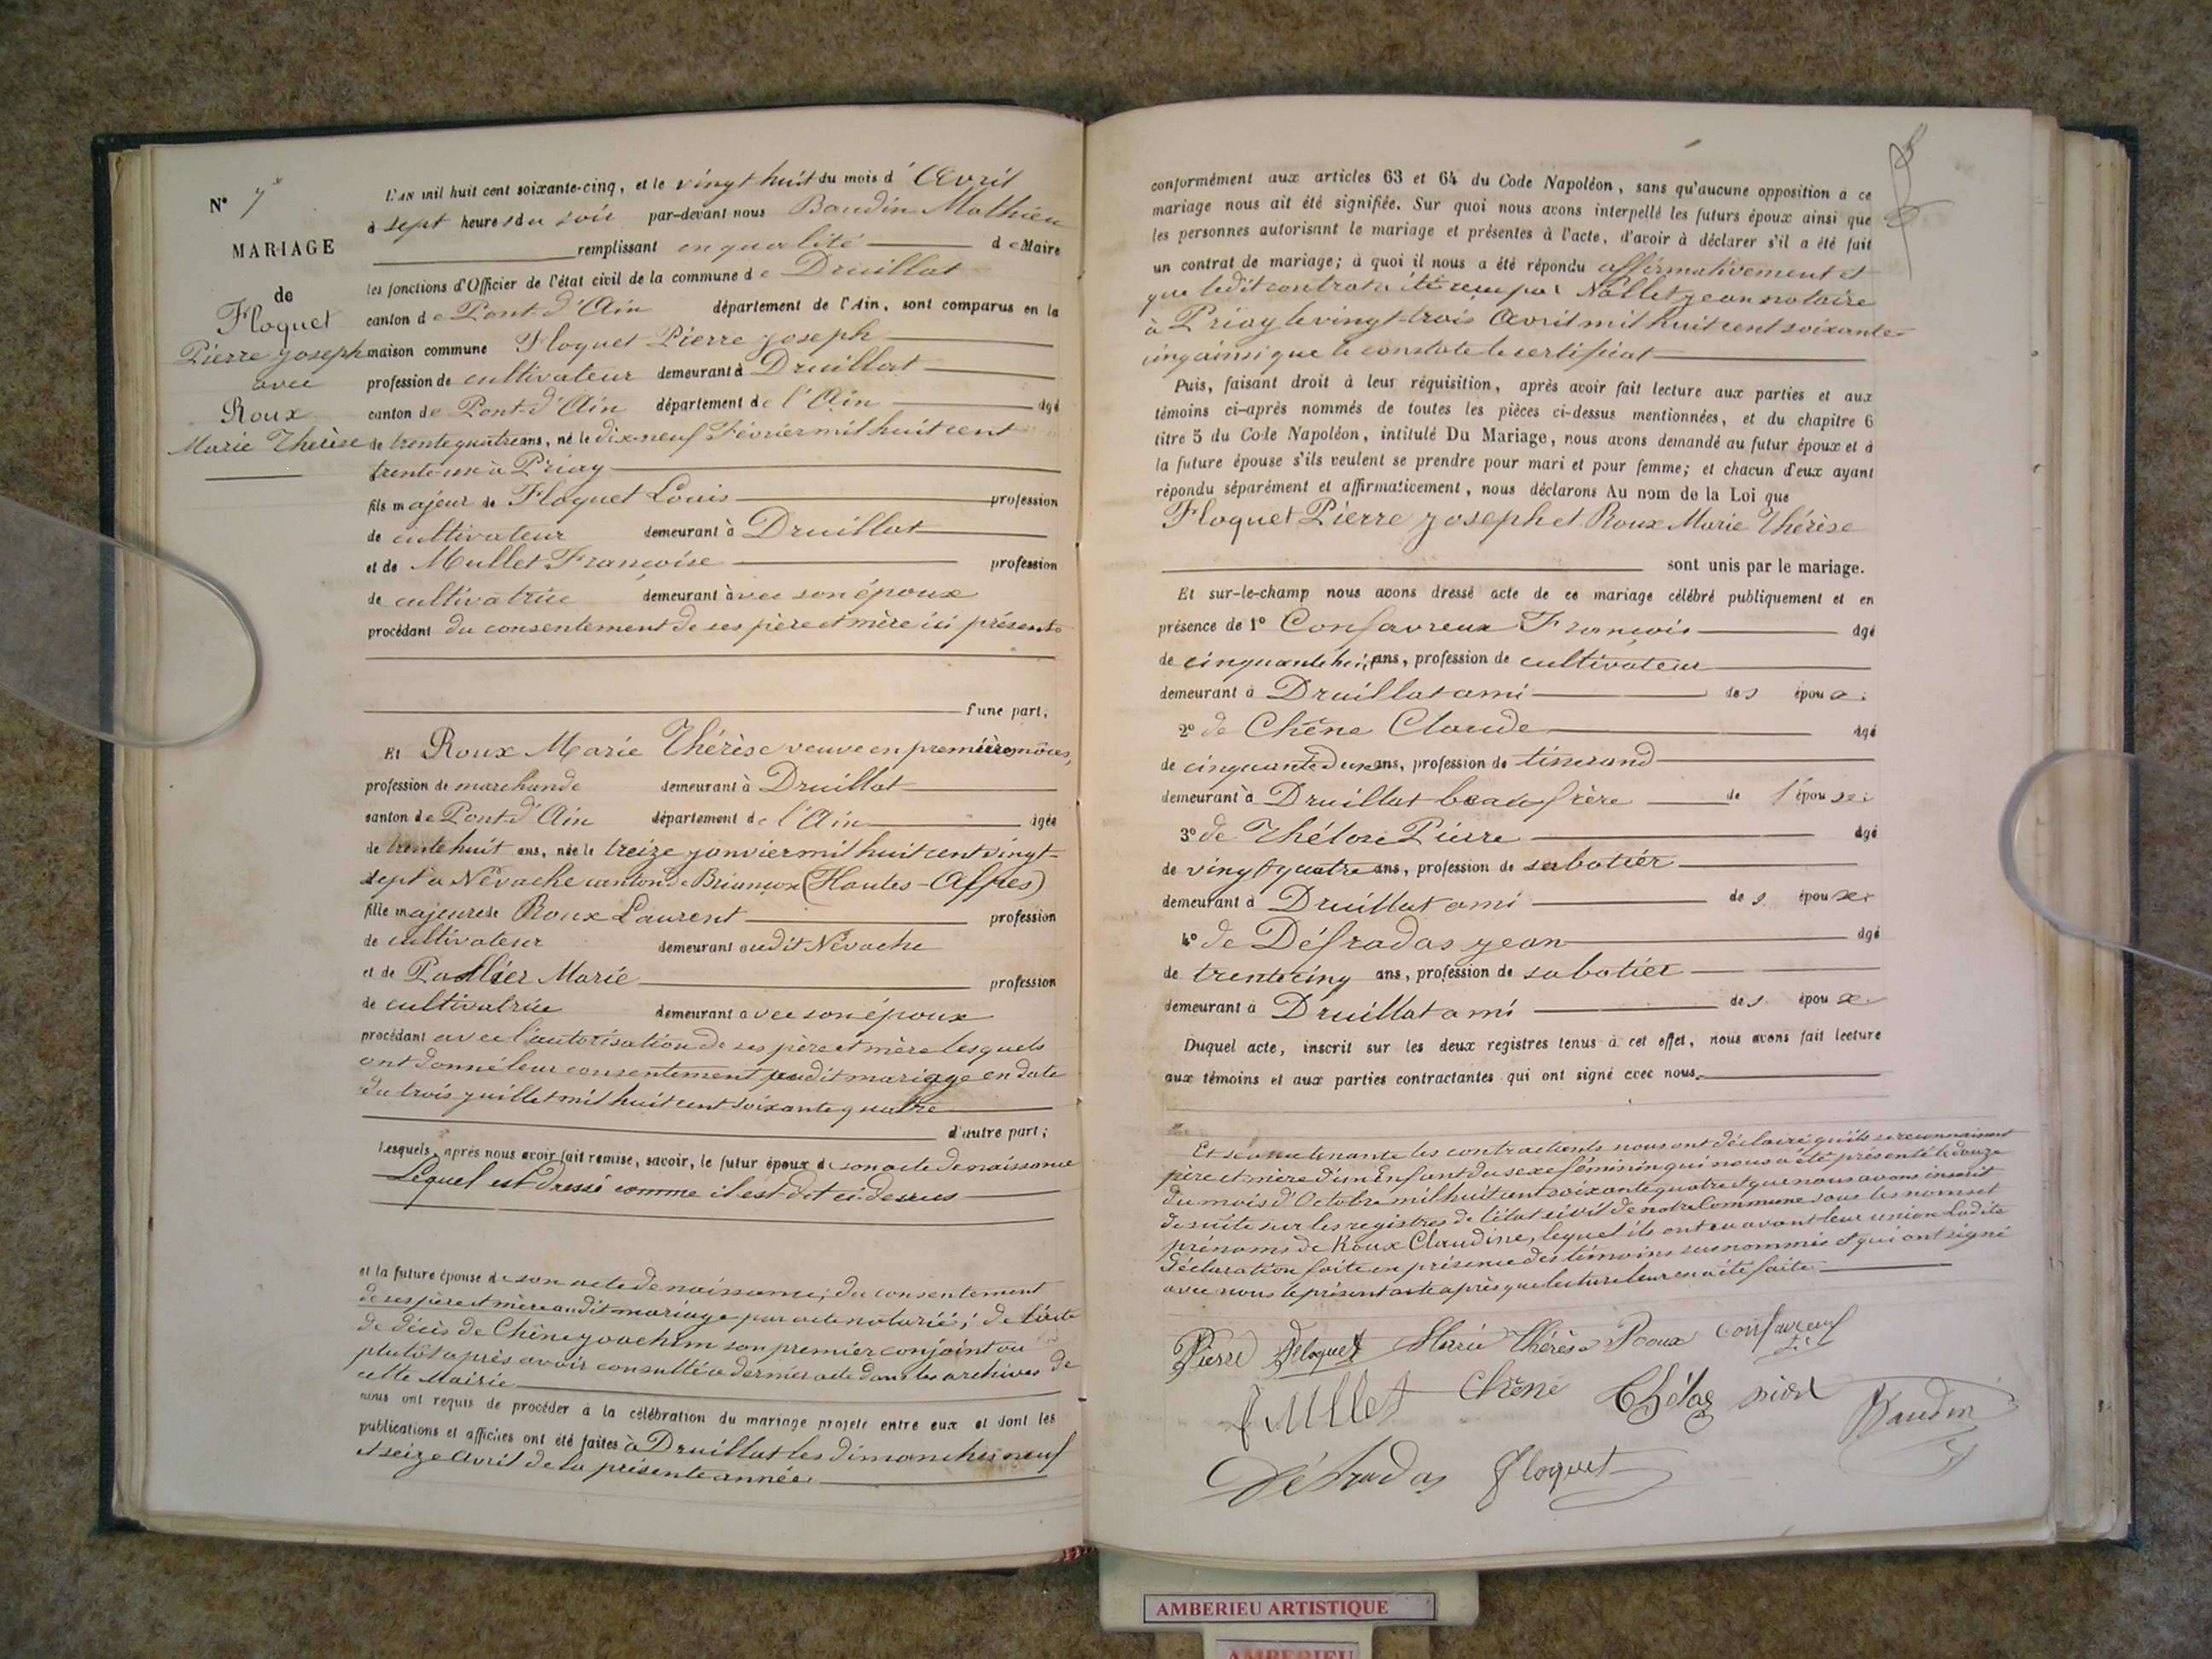 N° 7
MARIAGE
de
Floquet
Pierre Joseph
avec
Roux
Marie Thérèse
L'AN mil huit cent soixante-cinq, et le vingt huit du mois d' Avril
à sept heures du soir par-devant nous Baudin Mathieu
remplissant en qualité de Maire
les fonctions d'Officier de l'état civil de la commune de Druillat
canton de Pont-d'Ain département de l'Ain, sont comparus en la
maison commune Floquet Pierre Joseph
profession de cultivateur demeurant à Druillat
canton de Pont-d'Ain département de l'Ain âgé
de trente quatre ans, né le dix-neuf Février mil huit cent
trente-un à Priay
fils majeur de Floquet Louis profession
de cultivateur demeurant à Druillat
et de Mullet Françoise profession
de cultivatrice demeurant avec son époux
procédant du consentement de ses père et mère ici présents
d'une part;
Et Roux Marie Thérèse veuve en premières nôces,
profession de marchande demeurant à Druillat
canton de Pont-d'Ain département de l'Ain âgée
de trente huit ans, née le treize janvier mil huit cent vingt-
sept à Névache canton de Briançon (Hautes-Alpes)
fille majeure de Roux Laurent profession
de cultivateur demeurant audit Névache
et de Pallier Marie profession
de cultivatrice demeurant avec son époux
procédant avec l'autorisation de ses père et mère lesquels
ont donné leur consentement audit mariage en date
du trois juillet mil huit cent soixante quatre
d'autre part;
Lesquels, après nous avoir fait remise, savoir, le futur époux de son acte de naissance
Lequel est dressé comme il est dit ci-dessus
et la future épouse de son acte de naissance; du consentement
de ses père et mère audit mariage par acte notarié; de l'acte
de décès de Chêne Joachim son premier conjoint ou
plutôt après avoir consulté ce dernier acte dans les archives de
cette Mairie
nous ont requis de procéder à la célébration du mariage projeté entre eux et dont les
publications et affiches ont été faites à Druillat les dimanches neuf
et seize Avril de la présente année
conformément aux articles 63 et 64 du Code Napoléon, sans qu'aucune opposition à ce
mariage nous ait été signifiée. Sur quoi nous avons interpellé les futurs époux ainsi que
les personnes autorisant le mariage et présentes à l'acte, d'avoir à déclarer s'il a été fait
un contrat de mariage; à quoi il nous a été répondu affirmativement et
que ledit contrat a été reçu par Nallet Jean notaire
à Priay le vingt-trois Avril mil huit cent soixante-
cinq ainsi que le constate le certificat
Puis, faisant droit à leur réquisition, après avoir fait lecture aux parties et aux
témoins ci-après nommés de toutes les pièces ci-dessus mentionnées, et du chapitre 6
titre 5 du Code Napoléon, intitulé Du Mariage, nous avons demandé au futur époux et à
la future épouse s'ils veulent se prendre pour mari et pour femme; et chacun d'eux ayant
répondu séparément et affirmativement, nous déclarons Au nom de la Loi que
Floquet Pierre Joseph et Roux Marie Thérèse
sont unis par le mariage.
Et sur-le-champ nous avons dressé acte de ce mariage célébré publiquement et en
présence de 1° Confavreux François âgé
de cinquante huit ans, profession de cultivateur
demeurant à Druillat ami des époux.
2° de Chêne Claude âgé
de cinquante deux ans, profession de tisserand
demeurant à Druillat beau frère de l'épouse.
3° de Thélose Pierre âgé
de vingt quatre ans, profession de sabotier
demeurant à Druillat ami des époux.
4° de Défradas Jean âgé
de trente cinq ans, profession de sabotier
demeurant à Druillat ami des époux
Duquel acte, inscrit sur les deux registres tenus à cet effet, nous avons fait lecture
aux témoins et aux parties contractantes qui ont signé avec nous.
Et séance tenante les contractants nous ont déclaré qu'ils se reconnaissent
père et mère d'un Enfant du sexe féminin qui nous a été présenté le douze
du mois d'Octobre mil huit cent soixante quatre et que nous avons inscrit
de suite sur les registres de l'état civil de notre Commune sous les noms et
prénoms de Roux Claudine, lequel ils ont eu avant leur union Ladite
déclaration faite en présence des témoins susnommés et qui ont signé
avec nous le présent acte après que lecture leur en a été faite.
Pierre Floquet Marie Thérèse Roux Confavreux
Mullet Chêne Thélos Baudin
Défradas Floquet
AMBERIEU ARTISTIQUE
AMBERIEU